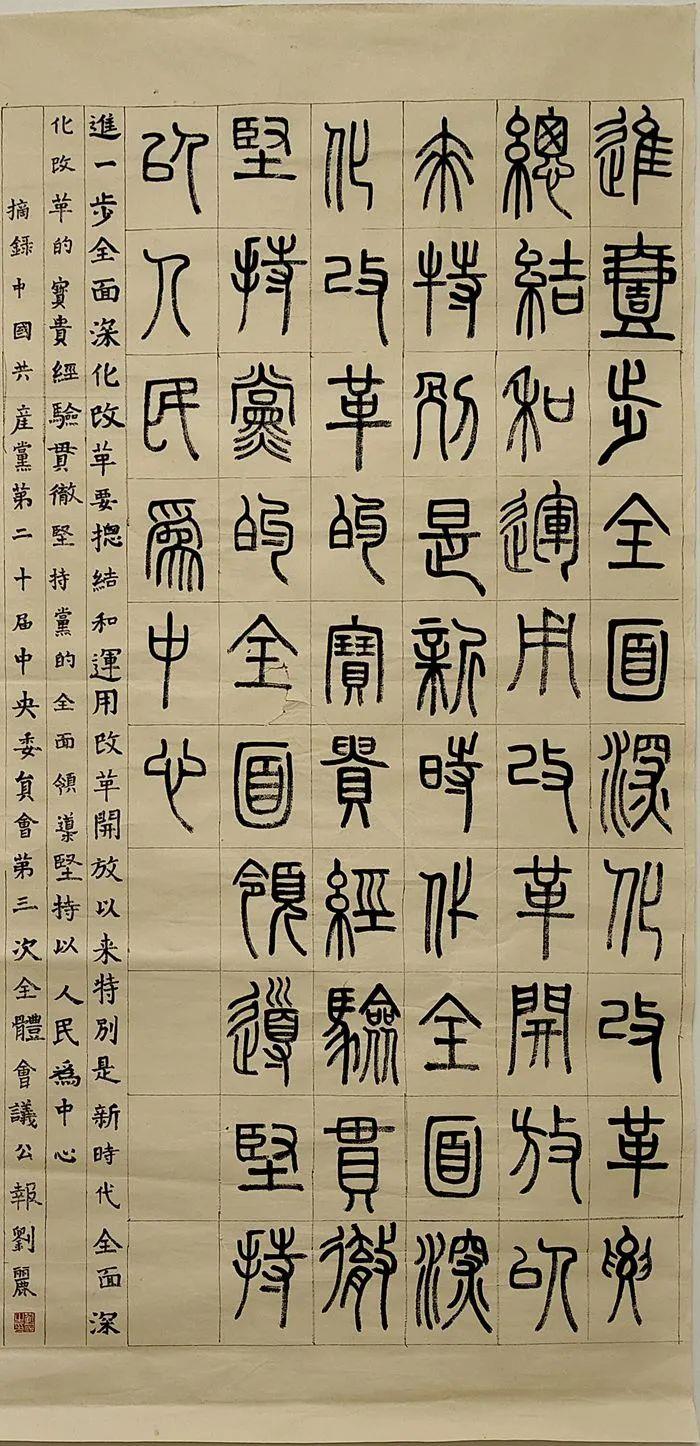 進壹步全面深化改革要
總結和運用改革開放以
来特別是新時代全面深
化改革的寶貴經驗貫徹
堅持黨的全面領導堅持
以人民爲中心
進一步全面深化改革要摠結和運用改革開放以来特別是新時代全面深
化改革的寶貴經驗貫徹堅持黨的全面領導堅持以人民爲中心
摘録中國共産黨第二十届中央委員會第三次全體會議公報劉麗